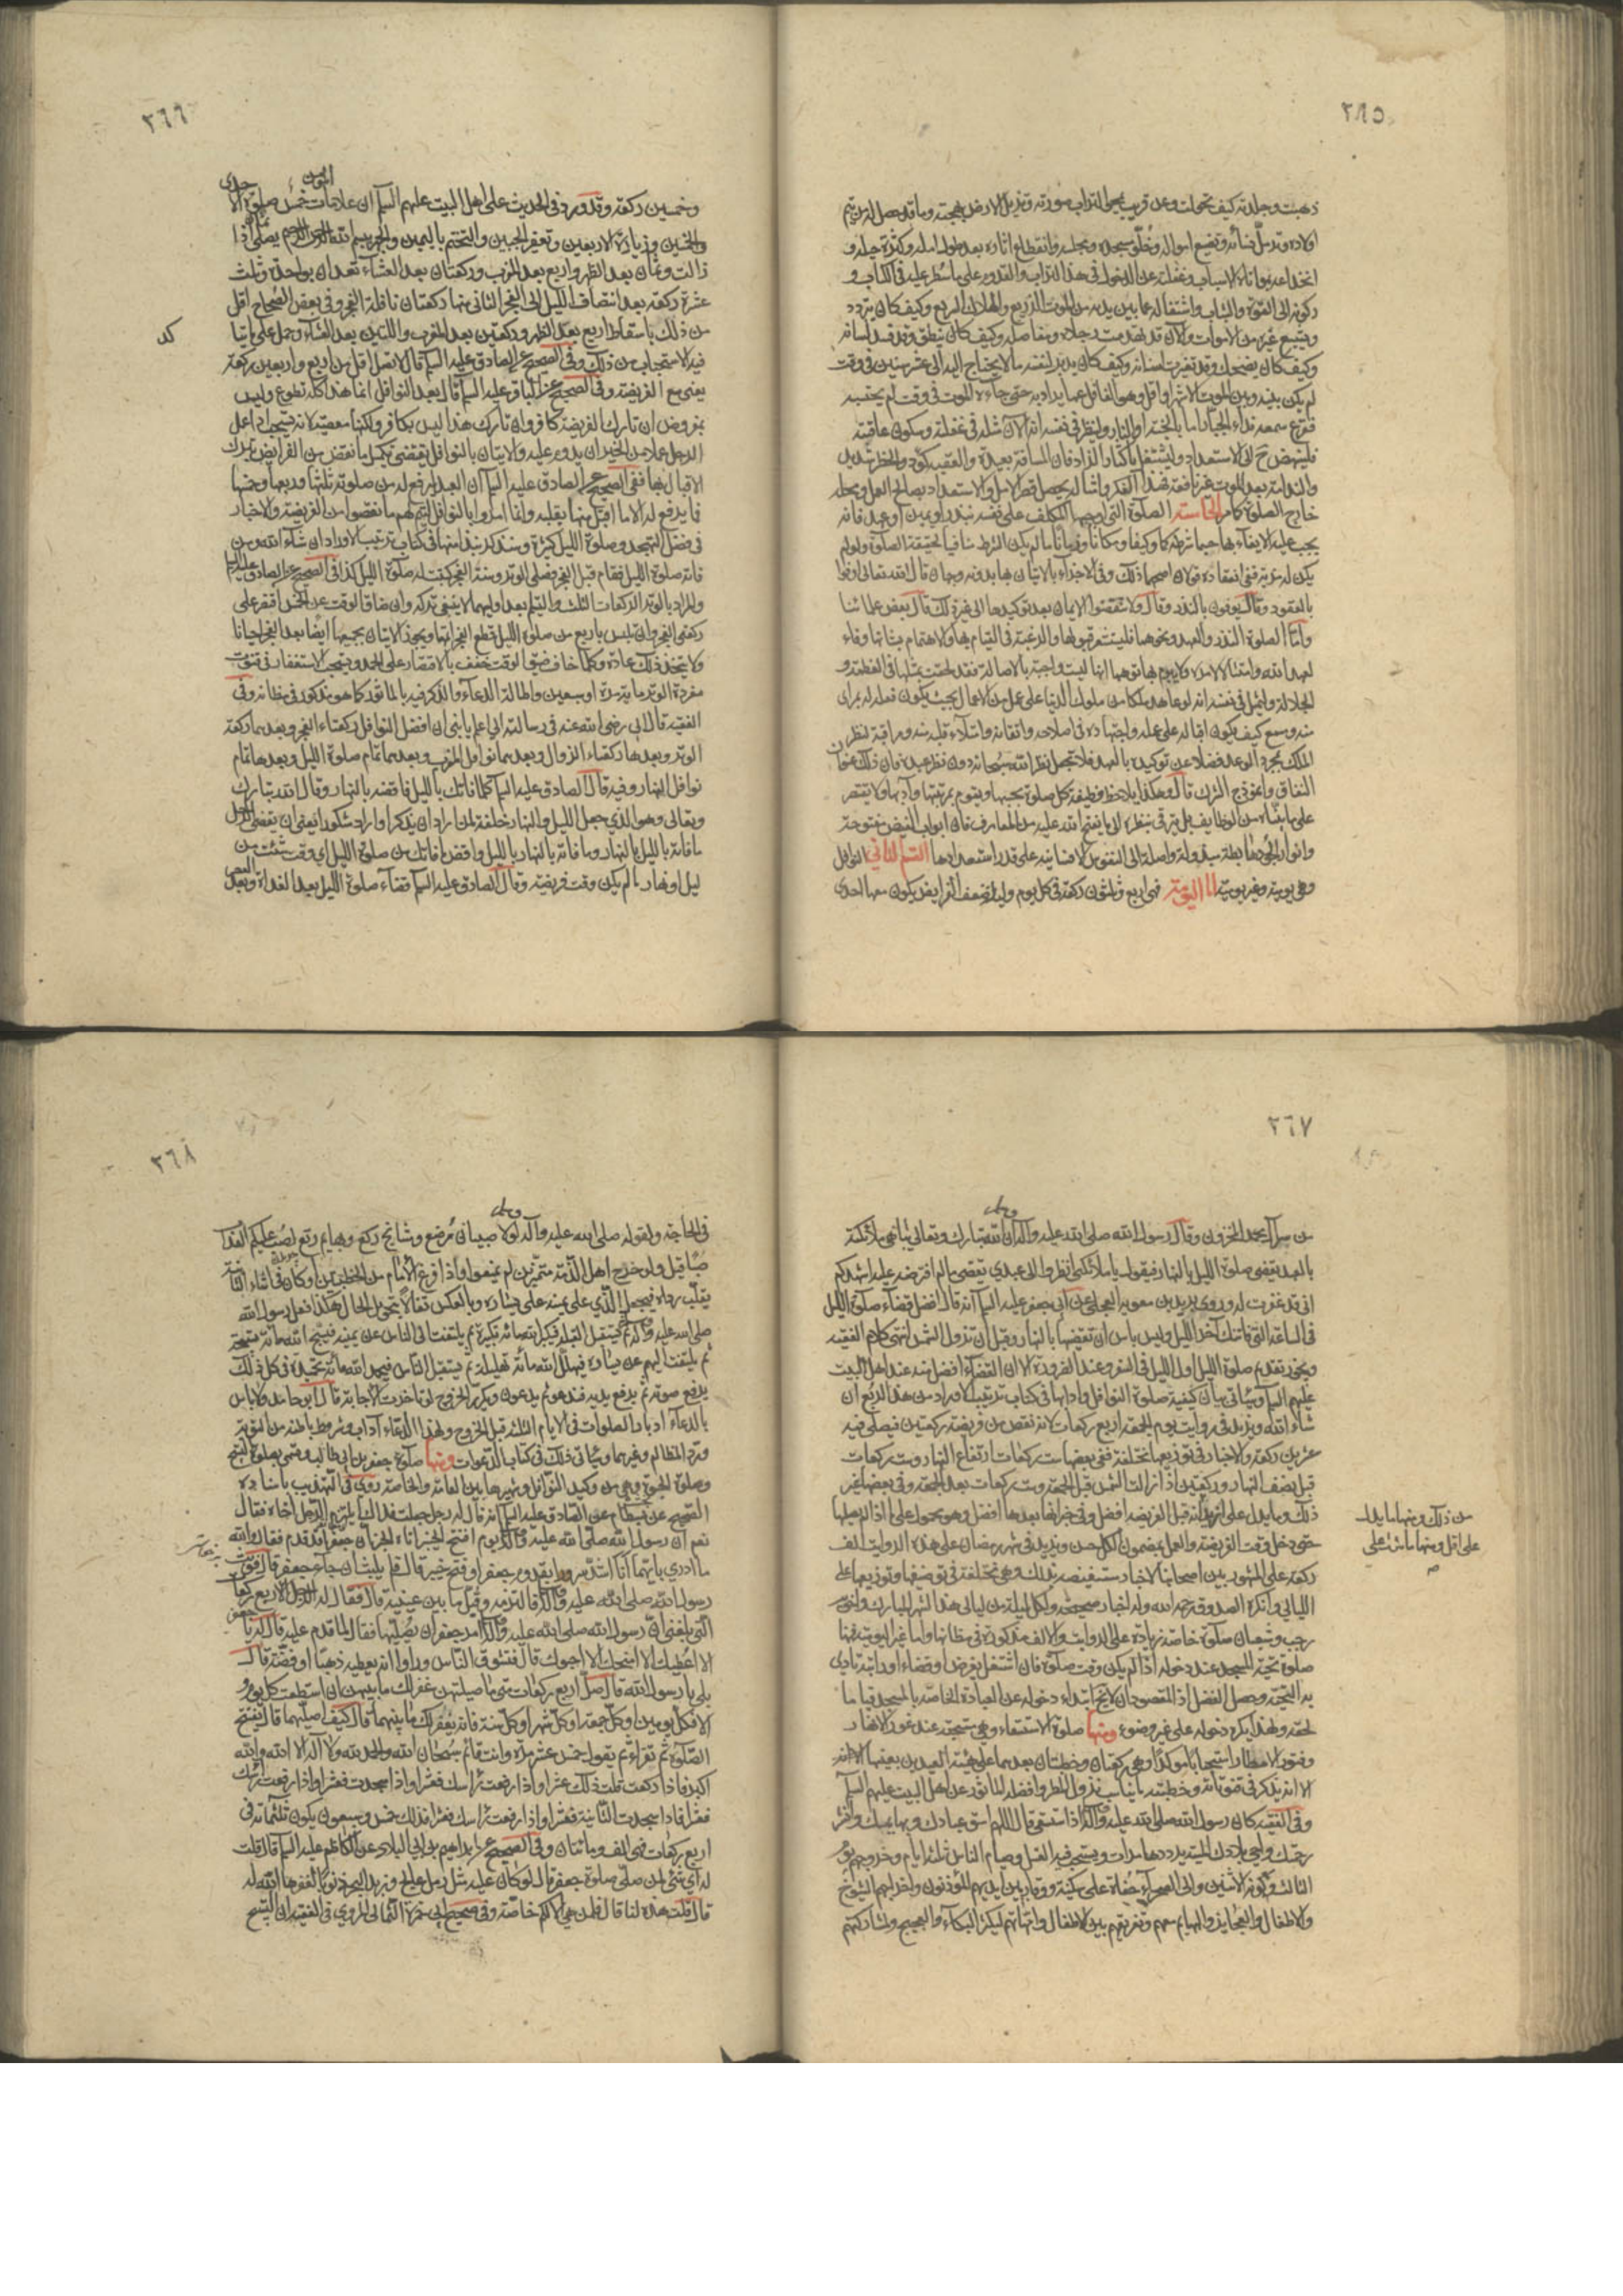 ٢٦٥
ذهبت وجلدته كيف تحولت وعن قريب يمحي التراب صورته وتزيل الارض بهجته وما قد حصل له من يتم
اولاده وترمل نسائه وتضييع امواله وخلو مسجده ومجلسه وانقطاع اثاره بعد طول امله وكثرة حيله و
انخداعه بمواتاة الاسباب وغفلته عن الدخول في هذا التراب والقدوم على ما سطر عليه في الكتاب و
ركونه الى القوة والشباب واشتغاله عما بين يديه من الموت الذريع والهلاك السريع وكيف كان يتردد
ويشيع غيره من الاموات والآن قد تهدمت رجلاه ومفاصله وكيف كان ينطق وقد فسد لسانه
وكيف كان يضحك وقد تغيرت اسنانه وكيف كان يدبر لنفسه ما لا يحتاج اليه الى عشر سنين في وقت
لم يكن بينه وبين الموت الا شهر او اقل وهو الغافل عما يراد به حتى جاءه الموت في وقت لم يحتسبه
فقرع سمعه نداء الجبار اما بالجنة او النار ولينظر في نفسه انه الآن مثله في غفلته وسيكون عاقبته
فلينهض ح الى الاستعداد وليشتغل باكثار الزاد فان المسافة بعيدة والعقبة كؤد والخطر شديد
والندامة بعد الموت غير نافعة فبهذا الفكر وامثاله يحصل قصر الامل والاستعداد بصالح العمل ومحله
خارج الصلوة كما مر الخامسة الصلوة التي اوجبها المكلف على نفسه بنذر او يمين او عهد فانه
يجب عليه الايفاء بها حسبما شرطه كما وكيفا ومكانا وزمانا ما لم يكن الشرط منافيا لحقيقة الصلوة ولو لم
يكن له مزية ففي انعقاده قولان اصحهما ذلك وفي الاجزاء بالاتيان بها بدونه وجهان قال الله تعالى اوفوا
بالعقود وقال يوفون بالنذر وقال ولا تنقضوا الايمان بعد توكيدها الى غير ذلك قال بعض علمائنا
واما الصلوة النذر والعهد ونحوهما فليستشعر قبولها والرغبة في القيام بها والاهتمام بشانها وفاء
لعهد الله وامتثالا لامره ولا يبرم بها توهما انها ليست واجبة بالاصالة فقد لحقت بمثلها في العظمة و
الجلالة وليمثل في نفسه انه لو عاهد ملكا من ملوك الدنيا على عمل من الاعمال بحيث يكون فعله له بمرأى
منه ومسمع كيف يكون اقباله على عمله واجتهاده في اصلاحه واتقانه وامتلاء قلبه منه ومراقبة لنظر
الملك بمجرد الوعد فضلا عن توكيده بالعهد فلا تجعل نظر الله سبحانه دون نظر عبده فان ذلك عنوان
النفاق وانموذج الشرك قال وهكذا يلاحظ وظيفة كل صلوة بحسبها ويقوم بمرتبتها وآدابها ولا يقتصر
على ما بيناه من الوظايف بل يترقى بنظره الى ما يفتح الله عليه من المعارف فان ابواب الفيض مفتوحة
وانوار الجود هابطة مبذولة واصلة الى النفوس الانسانية على قدر استعدادها القسم الثاني النوافل
وهي يومية وغير يومية اما اليومية فهي اربع وثلثون ركعة في كل يوم وليلة ضعف الفرايض يكون معها احدى
٢٦٦
وخمسين ركعة وقد ورد في الحديث على اهل البيت عليهم السلم ان علامات المؤمن خمس صلوة الاحدى
والخمسين وزيارة الاربعين وتعفير الجبين والتختم باليمين والجهر ببسم الله الرحمن الرحيم يصلي ثمان اذا
زالت وثمان بعد الظهر واربع بعد المغرب وركعتان بعد العشاء تعدان بواحدة وثلث
عشرة ركعة بعد انتصاف الليل الى الفجر الثاني منها ركعتان نافلة الفجر وفي بعض الصحاح اقل
من ذلك باسقاط اربع بعد الظهر وركعتين بعد المغرب واللتين بعد العشاء وحمل على ما يتاكد
فيه الاستحباب من ذلك وفي الصحيح عن الصادق عليه السلم قال لا تصل اقل من اربع واربعين ركعة
يعني مع الفريضة وفي الصحيح عن الباقر عليه السلم قال بعد النوافل انما هذا كله تطوع وليس
بمفروض ان تارك الفريضة كافر وان تارك هذا ليس بكافر ولكنها معصية لانه يستحب اذا عمل
الرجل عملا من الخير ان يدوم عليه والاتيان بالنوافل يقتضي تكميل ما نقص من الفرايض بترك
الاقبال بها ففي الصحيح عن الصادق عليه السلم ان العبد ليرفع له من صلوته ثلثها وربعها وخمسها
فما يرفع له الا ما اقبل منها بقلبه وانما امروا بالنوافل ليتم لهم ما نقصوا من الفريضة والاخبار
في فضل التهجد وصلوة الليل كثيرة وسنذكر نبذا منها في كتاب ترتيب الاوراد ان شاء الله ومن
فاته صلوة الليل فقام قبل الفجر فصلى الوتر وسنة الفجر كتبت له صلوة الليل كذا في الصحيح عن الصادق عليه السلم
والمراد بالوتر الركعات الثلث والتيلم بعد اوليهما لا ينبغي تركه وان ضاق الوقت عن الخمس اقتصر على
ركعتي الفجر وان تلبس باربع من صلوة الليل قطع الفجر اتمها ويجوز الاتيان بجميعها ايضا بعد الفجر احيانا
ولا يتخذ ذلك عادة وكلما خاف ضيق الوقت خفف بالاقتصار على الحمد ويستحب الاستغفار في قنوت
مفردة الوتر مائة مرة او سبعين واطالة الدعاء والذكر فيه بالماثور كما هو مذكور في مظانه وفي
الفقيه قال ابي رضي الله عنه في رسالته الي اعلم يا بني ان افضل النوافل ركعتاء الفجر وبعدهما ركعة
الوتر وبعدها ركعتاء الزوال وبعدهما نوافل المغرب وبعدهما تمام صلوة الليل وبعدها تمام
نوافل النهار وفيه قال الصادق عليه السلم كلما فاتك بالليل فاقضه بالنهار وقال الله تبارك
وتعالى وهو الذي جعل الليل والنهار خلفة لمن اراد ان يذكر او اراد شكورا يعني ان يقضي الرجل
ما فاته بالليل بالنهار وما فاته بالنهار بالليل واقض ما فاتك من صلوة الليل اي وقت شئت من
ليل او نهار ما لم يكن وقت فريضة وقال الصادق عليه السلم قضاء صلوة الليل بعد الغداة وبعد العصر
٢٦٧
من سر آل محمد المخزون وقال رسول الله صلى الله عليه وآله ان الله تبارك وتعالى ليباهي ملائكته
بالعبد يقضي صلوة الليل بالنهار فيقول يا ملائكتي انظروا الى عبدي يقضي ما لم افترضه عليه اشهدكم
اني قد غفرت له وروى بريد بن معوية العجلي عن ابي جعفر عليه السلم انه قال افضل قضاء صلوة الليل
في الساعة التي فاتتك آخر الليل وليس باس ان تقضيها بالنهار وقبل ان تزول الشمس انتهى كلام الفقيه
ويجوز تقديم صلوة الليل اول الليل في السفر وعند الضرورة الا ان القضاء افضل منه عند اهل البيت
عليهم السلم وسياتي بيان كيفية صلوة النوافل وادابها في كتاب ترتيب الاوراد من هذا الربع ان
شاء الله ويزيد في رواتب يوم الجمعة اربع ركعات لانه نقص من فريضته ركعتين فيصلي فيه
عشرين ركعة والاخبار في توزيعها مختلفة ففي بعضها ست ركعات ارتفاع النهار وست ركعات
قبل نصف النهار وركعتين اذا زالت الشمس قبل الجمعة وست ركعات بعد الجمعة وفي بعضها غير
ذلك ومنها ما يدل على اقل ومنها ما يدل على
حتى دخل وقت الفريضة والعمل بمضمون الكل حسن ويزيد في شهر رمضان على هذه الرواتب الف
ركعة على المشهور بين اصحابنا لاخبار مستفيضة بذلك وهي مختلفة في توظيفها وتوزيعها على
الليالي وانكره الصدوق رحمه الله وله اخبار صحيحة ولكل ليلة من ليالي هذا الشهر المبارك وليالي
رجب وشعبان صلوة خاصة زيادة على الرواتب والالف مذكورة في مظانها واما غير اليومية فمنها
صلوة تحية المسجد عند دخوله اذا لم يكن وقت صلوة فان اشتغل بفرض او قضاء او راتبة تادى
به التحية وحصل الفضل اذ المقصود ان لا يخلو ابتداء دخوله عن العبادة الخاصة بالمسجد قياما
لحقه ولهذا يكره دخوله على غير وضوء ومنها صلوة الاستسقاء وهي مستحبة عند غور الانهار
وفتور الامطار استحبابا مؤكدا وهي ركعتان وخطبتان بعدهما على هيئة العيدين بعينها الا انه
الا انه يذكر في قنوتاته وخطبته ما يناسب نزول المطر وافضله الماثور عن اهل البيت عليهم السلم
وفي الفقيه كان رسول الله صلى الله عليه وآله اذا استسقى قال اللهم اسق عبادك وبهائمك وانشر
رحمتك واحي بلادك الميتة يرددها مرات ويستحب فيه الغسل وصيام الناس ثلثة ايام وخروجهم يوم
الثالث وكونه الاثنين والى الصحراء حفاة على سكينة ووقار بين ايديهم المؤذنون واخراجهم الشيوخ
والاطفال والعجايز والبهايم معهم وتفريقهم بين الاطفال وامهاتهم ليكثر البكاء والعجيج ولمشاركتهم
من ذلك ومنها ما يدل
على اقل ومنها ما
٢٦٨
في الحاجة ولقوله صلى الله عليه وآله لولا صبيان رضع ومشايخ ركع وبهايم رتع لصب عليكم العذاب
صبا قيل ولو خرج اهل الذمة متميزين لم يمنعوا واذا فرغ الامام من الخطبتين او كان في اثناء الثانية
يقلب رداه فيجعل الذي على يمينه على يساره وبالعكس تفالا بتحويل الحال هكذا فعل رسول الله
صلى الله عليه وآله ثم يستقبل القبلة فيكبر الله مائة تكبيرة ثم يلتفت الى الناس عن يمينه فيسبح الله مائة تسبيحة
ثم يلتفت اليهم عن يساره فيهلل الله مائة تهليلة ثم يستقبل الناس فيحمد الله مائة تحميدة في كل ذلك
يرفع صوته ثم يرفع يديه فيدعو ثم يدعون ويكرر الخروج لو تاخرت الاجابة قال ابو حامد ولا باس
بالدعاء ادبار الصلوات في الايام الثلثة قبل الخروج ولهذا الدعاء آداب وشروط باطنة من التوبة
ورد المظالم وغيرهما وسياتي ذلك في كتاب الدعوات ومنها صلوة جعفر بن ابي طالب وتسمى بصلوة التسبيح
وصلوة الحبوة وهي من وكيد النوافل وشهيرها بين العامة والخاصة روى في التهذيب باسناده
الصحيح عن بسطام عن الصادق عليه السلم انه قال له رجل جعلت فداك ايلتزم الرجل اخاه فقال
نعم ان رسول الله صلى الله عليه وآله يوم افتتح خيبر اتاه الخبر ان جعفرا قد قدم فقال والله
ما ادري بايهما انا اشد سرورا بقدوم جعفر او فتح خيبر قال فلم يلبث ان جاء جعفر قال فوثب
رسول الله صلى الله عليه وآله فالتزمه وقبل ما بين عينيه قال فقال له الرجل الاربع ركعات
التي بلغني ان رسول الله صلى الله عليه وآله امر جعفرا ان يصليها فقال لما قدم عليه قال له يا جعفر
الا اعطيك الا امنحك الا احبوك قال فتشوف الناس ورأوا انه يعطيه ذهبا او فضة قال
بلى يا رسول الله قال صل اربع ركعات متى ما صليتهن غفر لك ما بينهن ان استطعت كل يوم و
الا فكل يومين او كل جمعة او كل شهر او كل سنة فانه يغفر لك ما بينهما قال كيف اصليها قال تفتتح
الصلوة ثم تقرأ ثم تقول خمس عشرة مرة وانت قائم سبحان الله والحمد لله ولا اله الا الله والله
اكبر فاذا ركعت قلت ذلك عشرا واذا رفعت راسك فعشرا واذا سجدت فعشرا واذا رفعت راسك
فعشرا فاذا سجدت الثانية فعشرا واذا رفعت راسك فعشرا فذلك خمس وسبعون يكون ثلثمائة في
اربع ركعات فهي الف ومائتان وفي الصحيح عن ابراهيم بن ابي البلاد عن الكاظم عليه السلم قال قلت
له اي شيء لمن صلى صلوة جعفر قال لو كان عليه مثل رمل عالج وزبد البحر ذنوبا لغفرها الله له
قال قلت هذه لنا قال فلمن هي الا لكم خاصة وفي صحيح ابي حمزة الثمالي المروي في الفقيه ان التسبيح